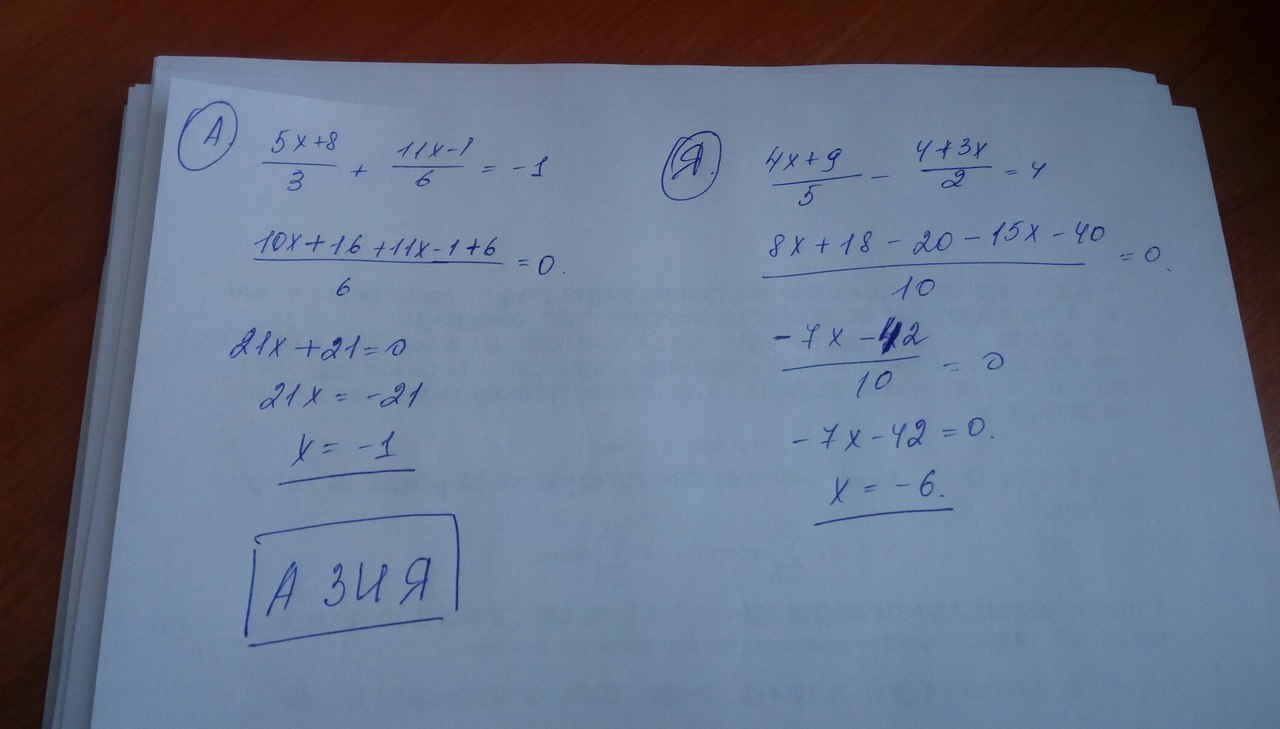 А
(5x+8)/3 + (11x-1)/6 = -1
(10x+16+11x-1+6)/6 = 0.
21x+21=0
21x = -21
x = -1
АЗИЯ
Я.
(4x+9)/5 - (4+3x)/2 = 4
(8x+18-20-15x-40)/10 = 0.
(-7x-42)/10 = 0
-7x-42=0.
x = -6.